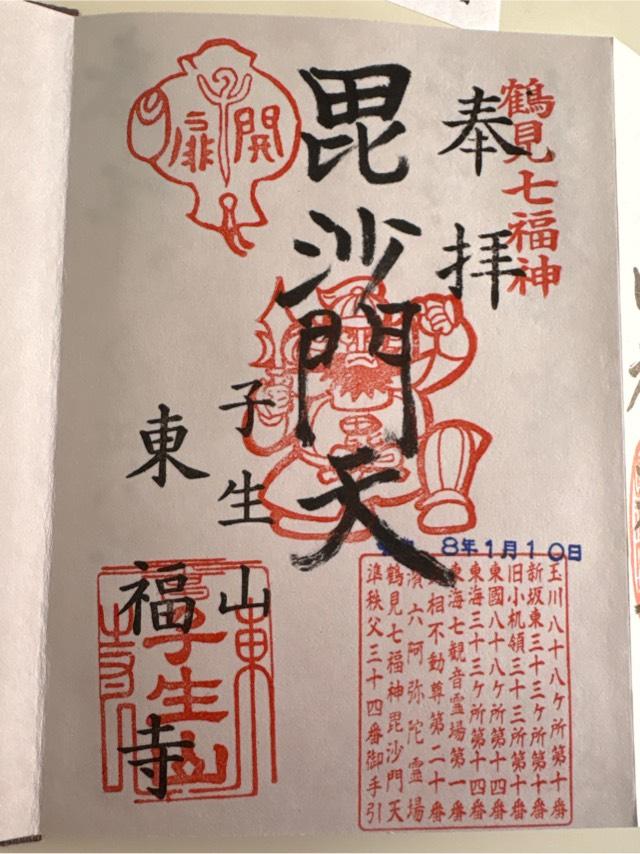 鶴見七福神
奉拝
毘沙門天
開扉
子生山
東福寺
8年1月10日
玉川八十八ケ所第十番
新坂東三十三ケ所第十番
旧小机領三十三所第十番
東國八十八ケ所第十四番
東海三十三ケ所第十四番
東海七観音霊場第一番
相不動尊第二十番
濱六阿弥陀霊場
鶴見七福神毘沙門天
準秩父三十四番御手引
東
子生山